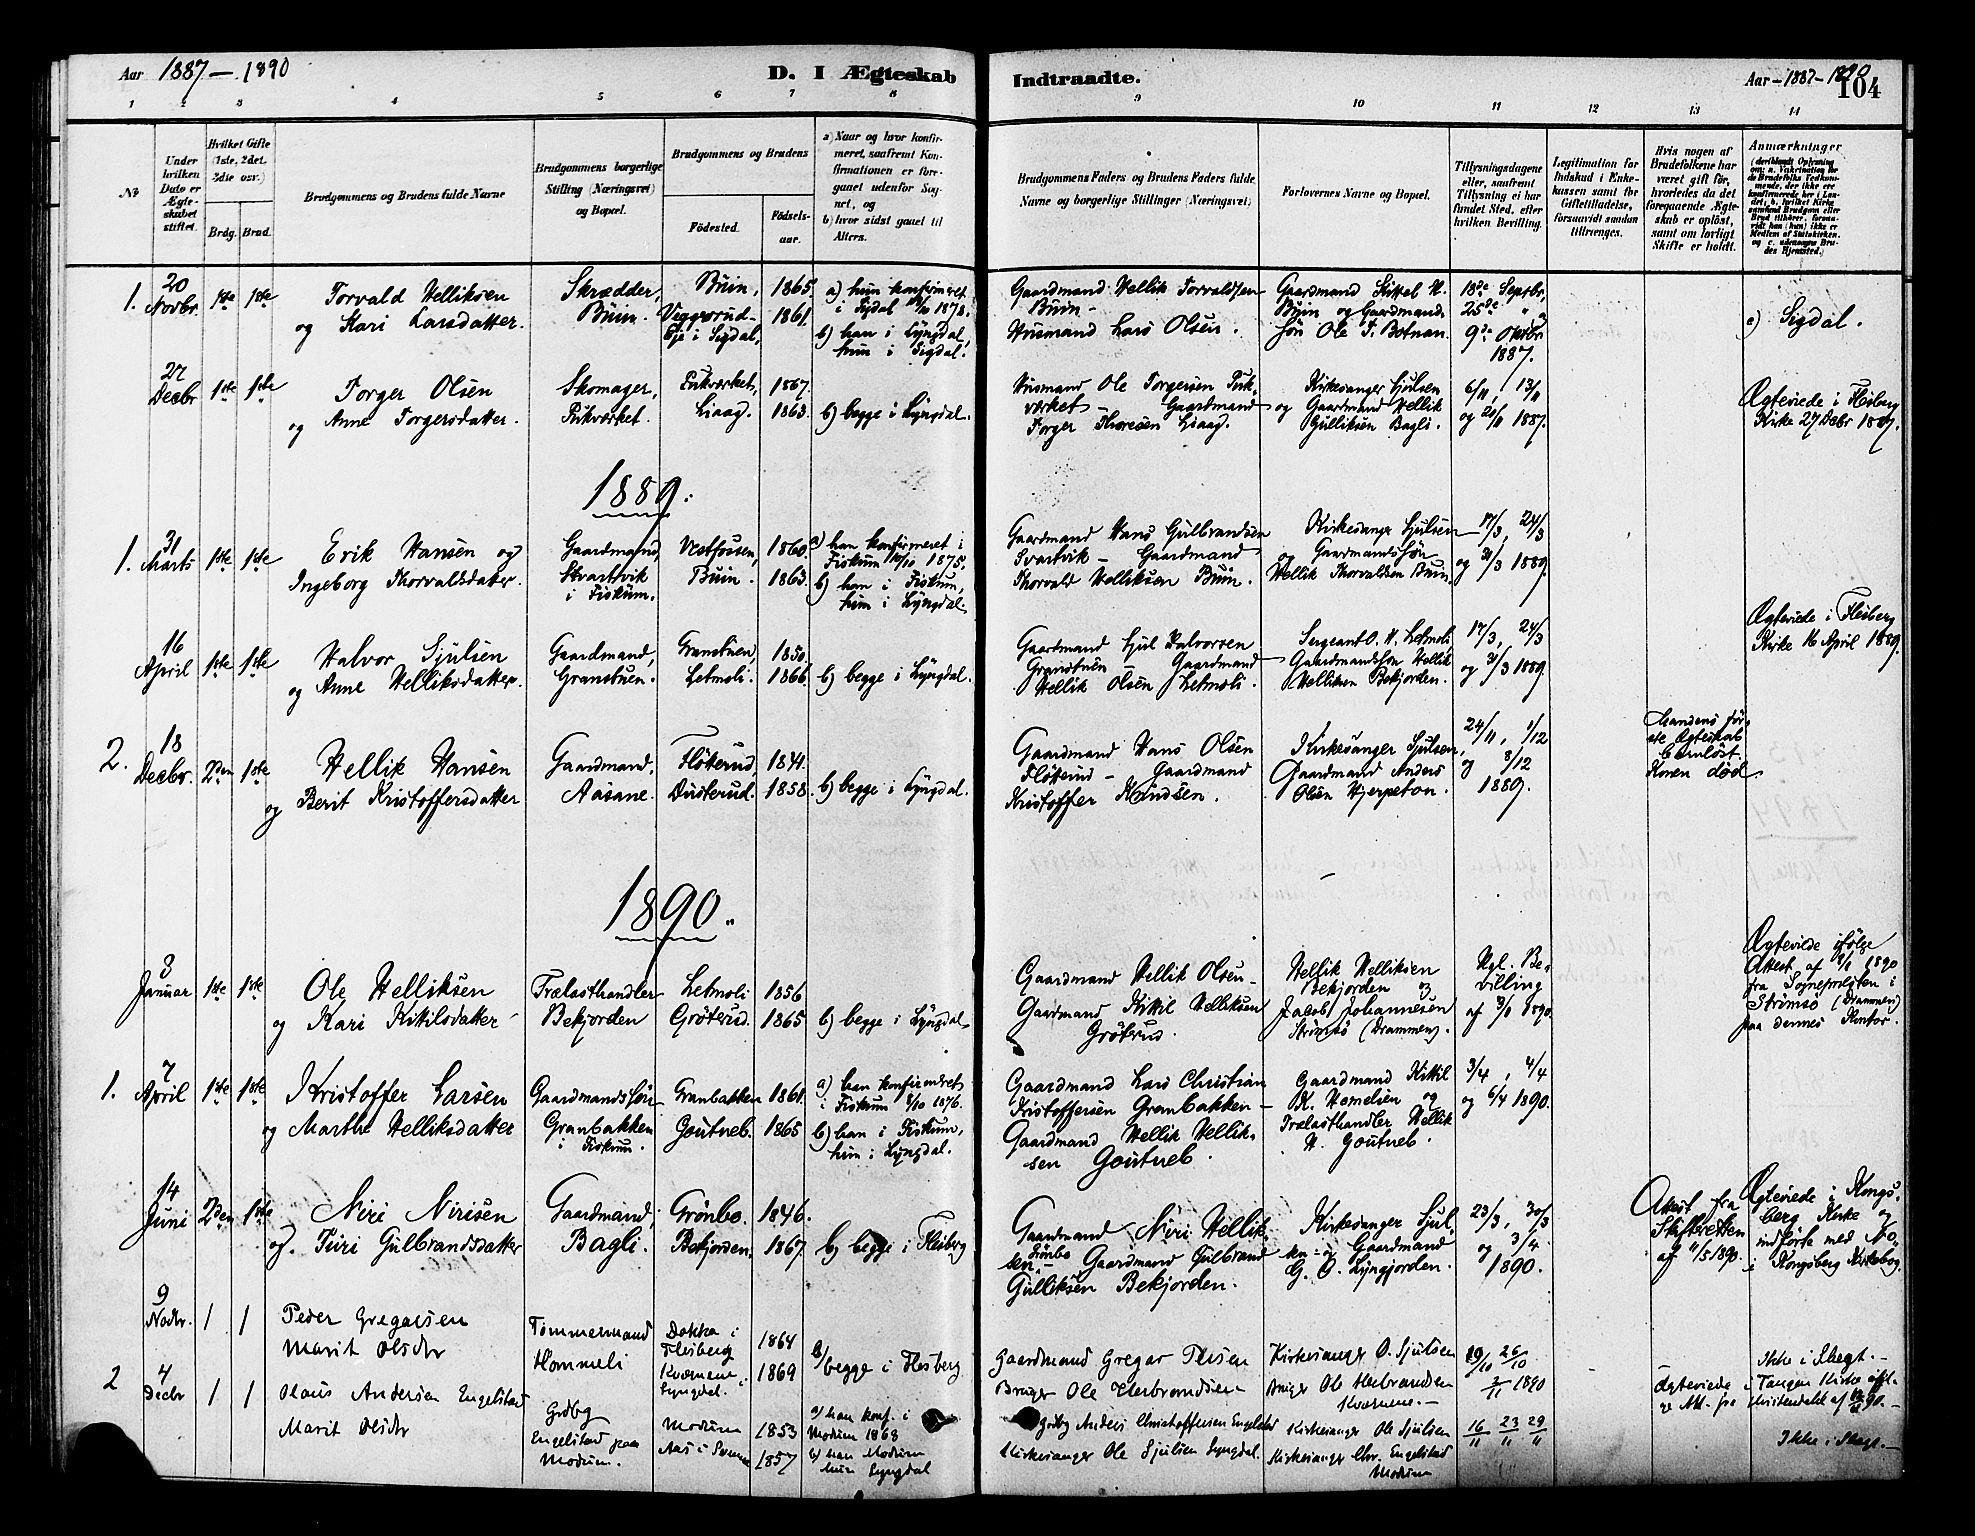 Aar 1887 — 1890
D. I Ægteskab
Indtraadte.
Aar — 1887 – 1890
104
1 2 3 4 5 6 7 8
9 10 11 12 13 14
No
Under hvilken Dato er Ægteskabet stiftet.
Hvilket Gifte (1ste, 2det. 3die osv.)
Brdg. Brud.
Brudgommens og Brudens fulde Navne
Brudgommens borgerlige Stilling (Næringsvei) og Bopæl.
Brudgommens og Brudens
Fødested.
Fødsels-aar.
a) Naar og hvor konfirmeret, saafremt Konfirmationen er foregaaet udenfor Sognet, og
b) hvor sidst gaaet til Alters.
Brudgommens Faders og Brudens Faders fulde Navne og borgerlige Stillinger (Næringsvei)
Forlovernes Navne og Bopæl.
Tillysningsdagene eller, saafremt Tillysning ei har fundet Sted, efter hvilken Bevilling.
Legitimation for Indskud i Enkekassen samt for Giftetilladelse, forsaavidt saadan tiltrænges.
Hvis nogen af Brudefolkene har været gift før, hvorledes da det foregaaende Ægteskab er opløst, samt om lovligt Skifte er holdt.
Anmærkninger
1. 20 Novbr. 1ste 1ste Torvald Helliksen
og Kari Larsdatter.
Skrædder, Buin.
Buin, 1865
Veggerud-Eje i Sigdal, 1861.
a) hun konfirmeret i Sigdal 1878.
b) han i Lyngdal, hun i Sigdal.
Gaardmand Hellik Torvaldsen Buin –
Husmand Lars Olsen.
Gaardmand Kittel H. Buin og Gaardmandssøn Ole T. Botnan.
18de Septbr, 25de " og 9de Oktbr 1887.
c) Sigdal.
27 Decbr 1ste 1ste Torger Olsen
og Anne Torgersdatter.
Skomager,
1867.
Liaag. 1863.
b) begge i Lyngdal.
Husmand Ole Torgersen
Gaardmand Torger Thoresen Liaag.
Kirkesanger Sjulsen og Gaardmand Hellik Gulliksen Bagli.
6/11, 13/11 og 20/11 1887.
Ægteviede i Flesberg Kirke 27 Decbr 1887.
1889.
1. 31 Marts 1ste 1ste Erik Hansen og
Ingeborg Thorvaldsdater.
Gaardmand, Svartvik i Fiskum.
Vestfossen, 1860.
Buin. 1863.
a) han konfirmeret i Fiskum 10/10 1875.
b) han i Fiskum, hun i Lyngdal.
Gaardmand Hans Gulbrandsen Svartvik – Gaardmand Thorvald Helliksen Buin.
Kirkesanger Sjulsen og Gaardmandssøn Hellik Thorvaldsen Buin.
17/3, 24/3 og 31/3 1889.
16 April 1ste 1ste Halvor Sjulsen
og Anne Helliksdatter.
Gaardmand, Granstuen.
Granstuen, 1850.
Letmoli. 1866.
b) begge i Lyngdal.
Gaardmand Sjul Halvorsen Granstuen – Gaardmand Hellik Olsen Letmoli.
Sergeant O. H. Letmoli, Gaardmandssøn Hellik Helliksen Bekjorden.
17/3, 24/3 og 31/3 1889.
Ægteviede i Flesberg Kirke 16 April 1889.
2. 18 Decbr. 2den 1ste Hellik Hansen
og Berit Kristoffersdatter
Gaardmand, Aasane.
Fløterud, 1841.
Dusterud. 1858.
b) begge i Lyngdal.
Gaardmand Hans Olsen Fløterud – Gaardmand Kristoffer Knudsen.
Kirkesanger Sjulsen, Gaardmand Anders Olsen Hjerpeton.
24/11, 1/12 og 8/12 1889.
Mandens første Ægteskab barnløst. Konen død.
1890.
3 Januar 1ste 1ste Ole Helliksen
og Kari Kittilsdatter
Trælasthandler Bekjorden
Letmoli 1856
Grøterud. 1865
b) begge i Lyngdal
Gaardmand Hellik Olsen –
Gaardmand Kittil Helliksen Grøterud.
Hellik Helliksen Bekjorden og Jacob Johannesen Strømsø (Drammen).
Kgl. Bevilling af 3/1 1890.
Ægteviede ifølge Attest af 1890 fra Sognepresten i Strømsø (Drammen) paa dennes Kontor.
1. 7 April 1ste 1ste Kristoffer Larsen
og Marthe Helliksdatter
Gaardmandssøn Granbakken i Fiskum.
Granbakken 1861.
Goutneb. 1865
a) han konfirmeret i Fiskum 8/10 1876.
b) han i Fiskum, hun i Lyngdal.
Gaardmand Lars Christian Kristoffersen Granbakken – Gaardmand Hellik Helliksen Goutneb.
Gaardmand Kittil K. Homelien og Trælasthandler Hellik H. Goutneb.
3/4, 4/4 og 6/4 1890.
14 Juni 2den 1ste Niri Nirisen
og Turi Gulbrandsdatter
Gaardmand, Bagli.
Grönbo. 1846.
Bekjorden. 1867.
b) begge i Flesberg
Gaardmand Niri Helliksen – Gaardmand Gulbrand Gulliksen Bekjorden.
Kirkesanger Sjulsen og Gaardmand G. O. Lyngjorden.
23/3, 30/3 og 3/4 1890.
Attest fra Skifteretten af 11/5 1890.
Ægteviede i Kongsberg Kirke og indførte med No i Kongsberg Kirkebog
9 Novbr. 1 1 Peder Gregarsen
Marit Olsdtr
Tømmermand Hommeli
Dokka i Flesberg 1864
Kværnene i Lyngdal. 1869
b) begge i Flesberg
Gaardmand Gregar
Bruger Ole Herbrandsen
Kirkesanger O. Sjulsen
Bruger Ole Herbrandsen Kværnene. –
19/10 26/10 2/11 1890
Ikke i Slægt. –
Ægteviede i Tangen Kirke
2 4 Decbr 1 1 Olaus Andersen Engelstad
Marit Olsdtr
Grdbg Engelstad paa Modum.
Modum 1853
1857
a) han konf. i Modum 1868
b) han Modum hun Lyngdal
Grdbg Anders Christoffersen Engelstad
Kirkesanger Ole Sjulsen Lyngdal.
Kirkesanger Ole Sjulsen
Kirkesanger Chr. Engelstad Modum
16/11 23/11 29/11
Ikke i Slægt. –